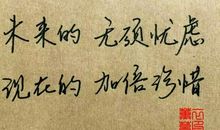 未来的 无须忧虑
现在的 加倍珍惜